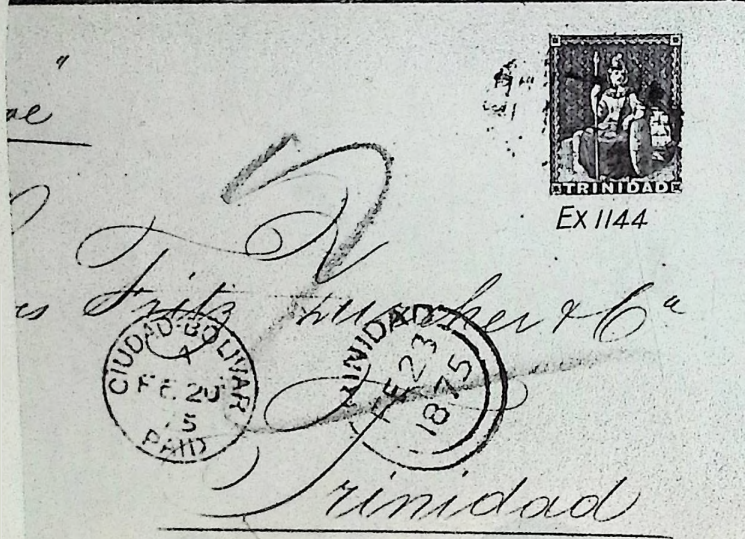 TRINIDAD
Ex 1144
Fritz Zurcher & Cª
CIUDAD-BOLIVAR
FE 20
75
PAID
TRINIDAD
FE 23
1875
Trinidad